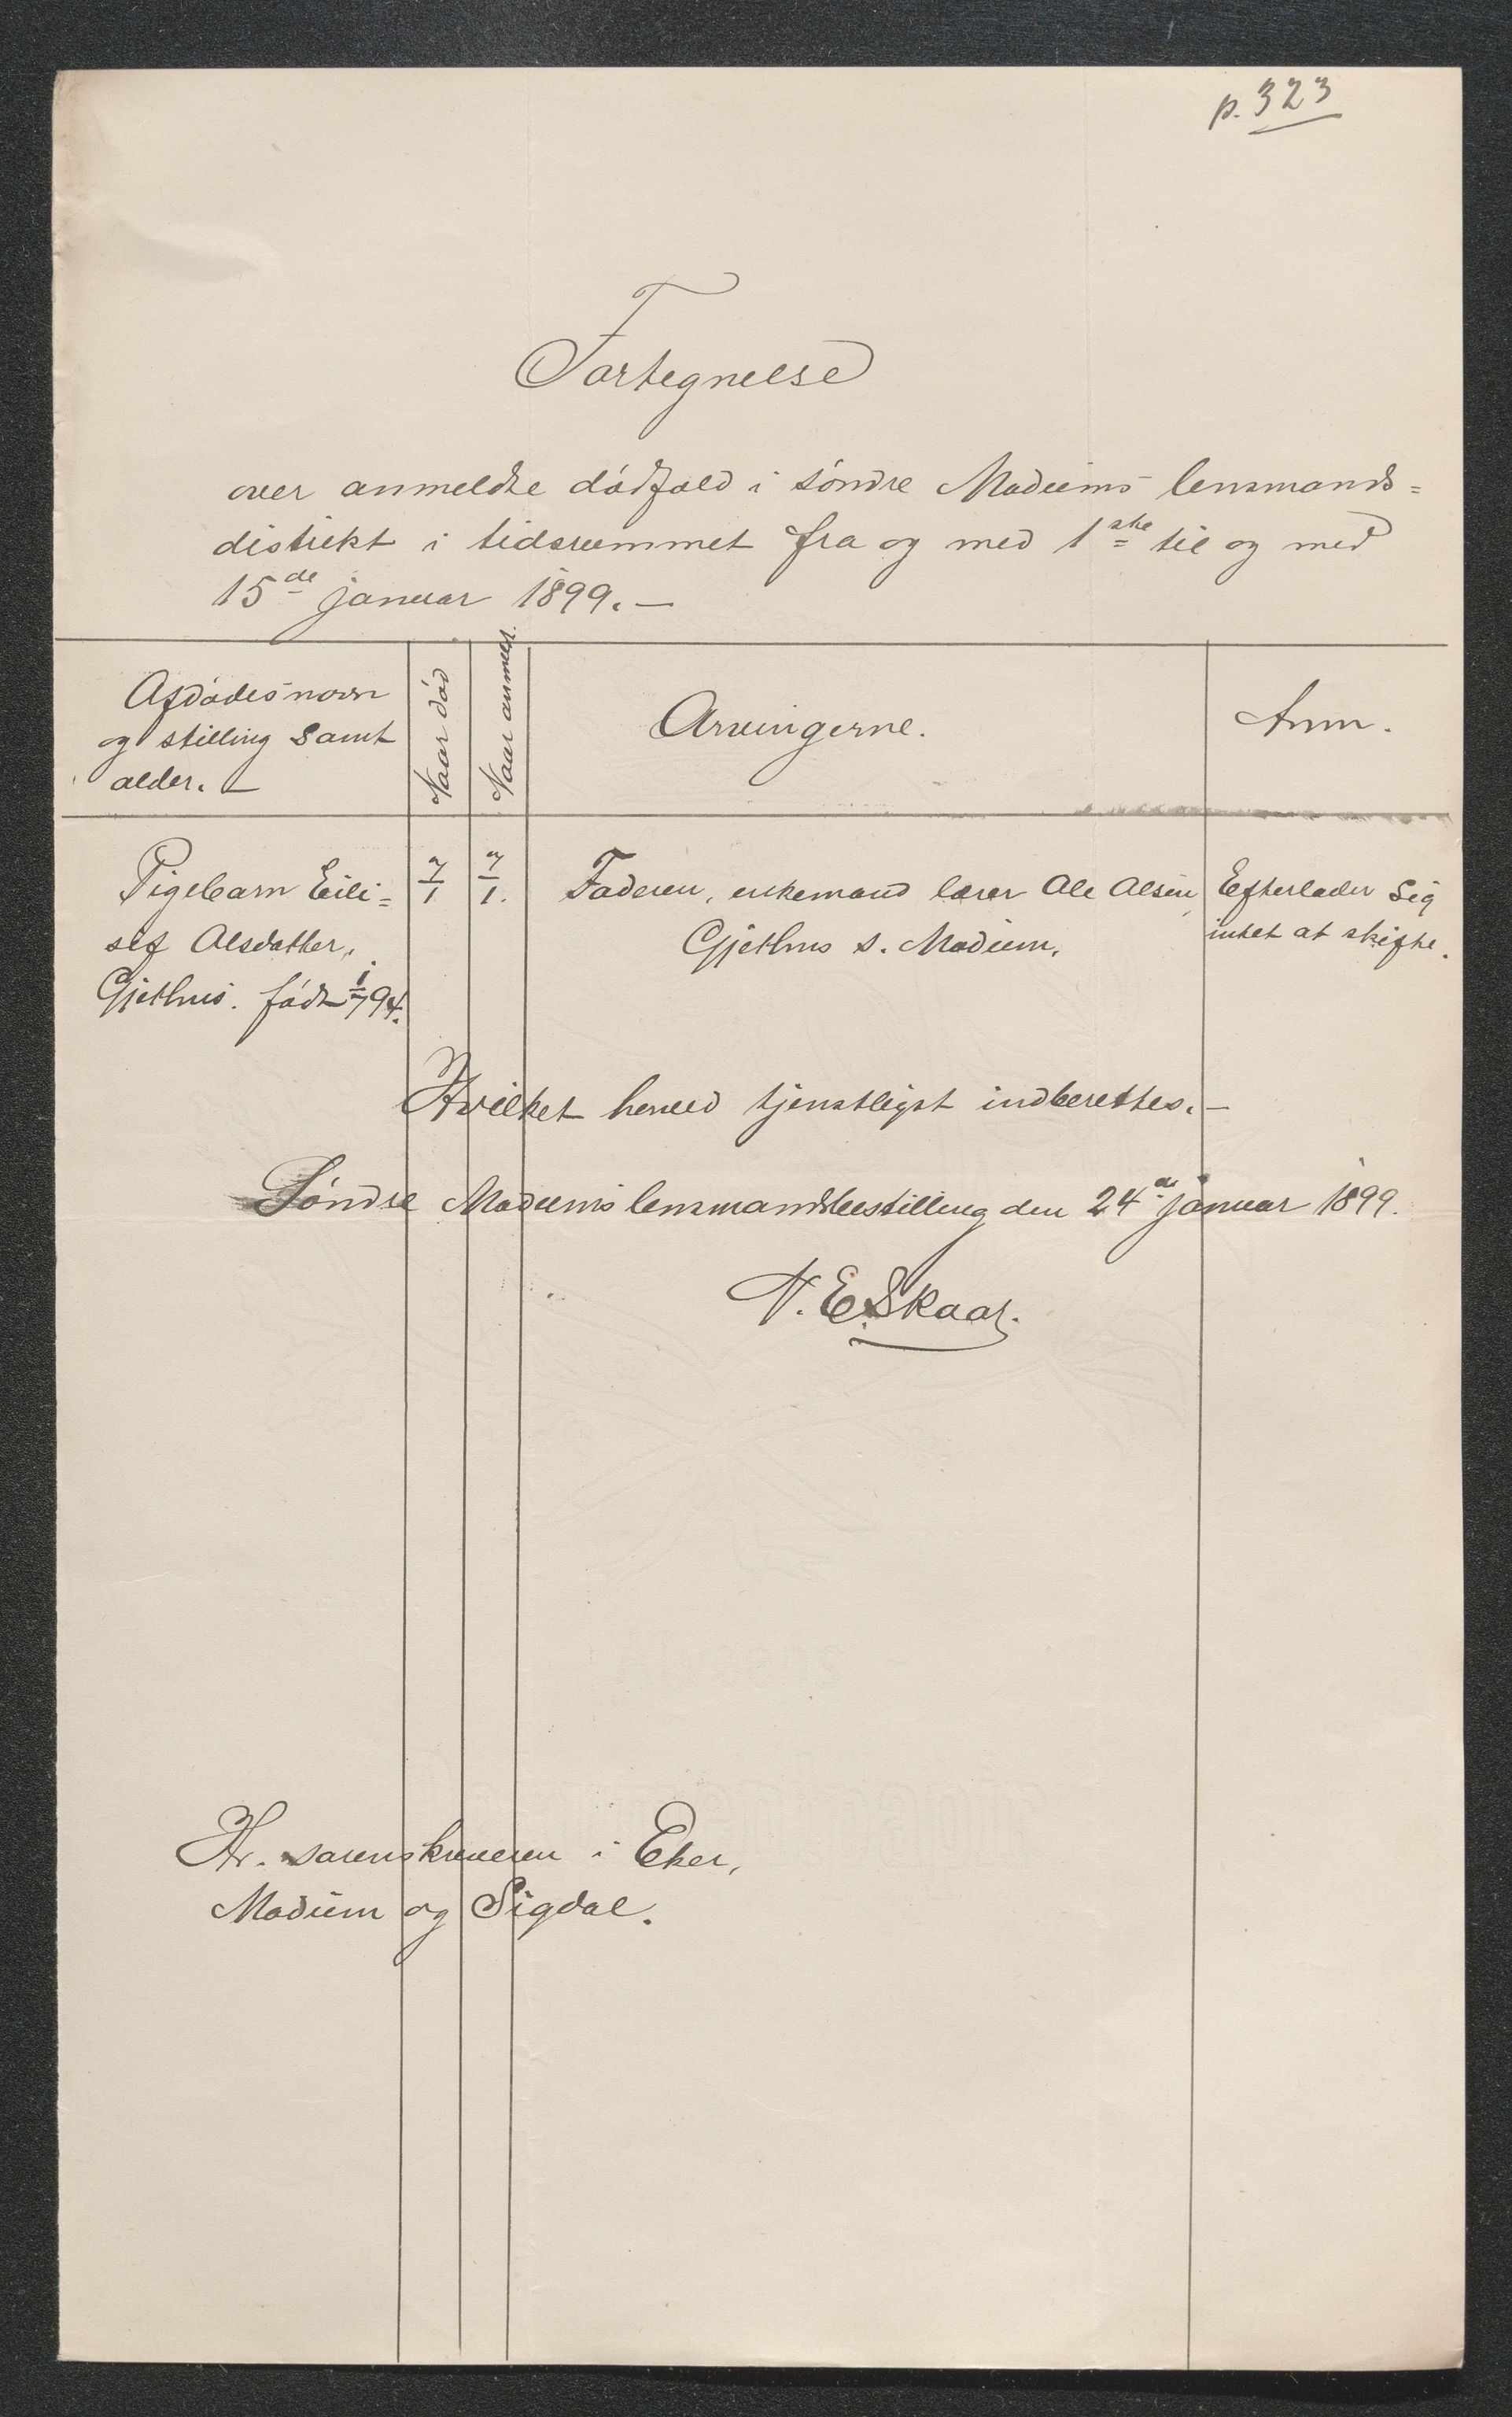 p. 323
Fortegnelse
over anmeldte dødsfald i søndre Modums lensmands=
distrikt i tidsrummet fra og med 1ste til og med
15de januar 1899. —
Afdødes navn
og stilling samt
alder. —
Naar død
Naar anmeldt.
Arvingerne.
Anm.
Pigebarn Eili=
sef Olsdatter,
Gjethus. født 1/7 94.
7/1
7/1.
Faderen, enkemand lærer Ole Olsen,
Gjethus s. Modum.
Efterlader sig
intet at skifte.
Hvilket herved tjenstligst indberettes. —
Søndre Modums lensmandsbestilling den 24de januar 1899.
N. E. Skaar.
Hr. sorenskriveren i Eker,
Modum og Sigdal.